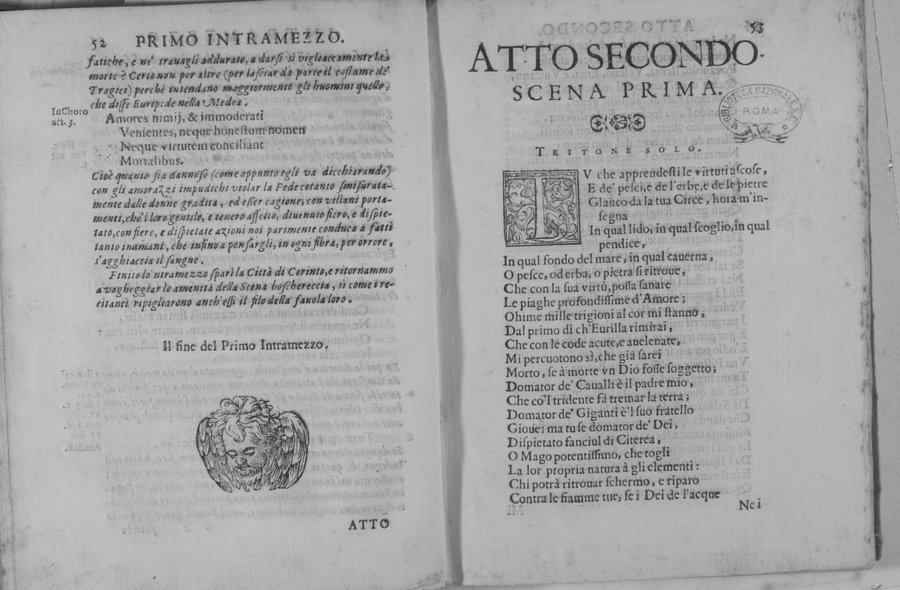 52 PRIMO INTRAMEZZO.
fatiche, e ne' trauagli addurato, a darsi sì vigliaccamente la
morte è Certa non per altro (per lasciar da parte il costume de'
Tragici) perchè intendano maggiormente gli huomini quello,
che disse Euripide nella Medea.
In Choro
act. 3.
Amores nimij, & immoderati
Venientes, neque honestum nomen
Neque virtutem conciliant
Mortalibus.
Cioè quanto sia dannoso (come appunto egli va dicchiarando)
con gli amorazzi impudichi violar la Fede cotanto smisurata-
mente dalle donne gradita, ed esser cagione, con villani porta-
menti, chè'l loro gentile, e tenero affetto, diuenuto fiero, e dispie-
tato, con fiere, e dispietate azioni noi parimente conduca a fatti
tanto inumani, che infino a pensargli, in ogni fibra, per orrore,
s'agghiaccia il sangue.
Finito lo'ntramezzo sparì la Città di Corinto, e ritornammo
a vagheggiar le amenità della Scena boschereccia, sì come i re-
citanti ripigliarono anch'essi il filo della fauola loro.
Il fine del Primo Intramezzo.
ATTO
53
ATTO SECONDO.
SCENA PRIMA.
BIBLIOTECA NAZIONALE
ROMA
TRITONE SOLO.
TV che apprendesti le virtuti ascose,
E de' pesci, e de l'erbe, e de le pietre
Glauco da la tua Circe, hora m'in-
segna
In qual lido, in qual scoglio, in qual
pendice,
In qual fondo del mare, in qual cauerna,
O pesce, od erba, o pietra si ritroue,
Che con la sua virtù, possa sanare
Le piaghe profondissime d'Amore;
Ohime mille trigioni al cor mi stanno,
Dal primo dì ch'Eurilla rimirai,
Che con le code acute, e auelenate,
Mi percuotono sì, che già sarei
Morto, se à morte vn Dio fosse soggetto;
Domator de' Caualli è il padre mio,
Che co'l tridente fà tremar la terra;
Domator de' Giganti è'l suo fratello
Gioue; ma tu se domator de' Dei,
Dispietato fanciul di Citerea,
O Mago potentissimo, che togli
La lor propria natura à gli elementi:
Chi potrà ritrouar schermo, e riparo
Contra le fiamme tue, se i Dei de l'acque
Ne i